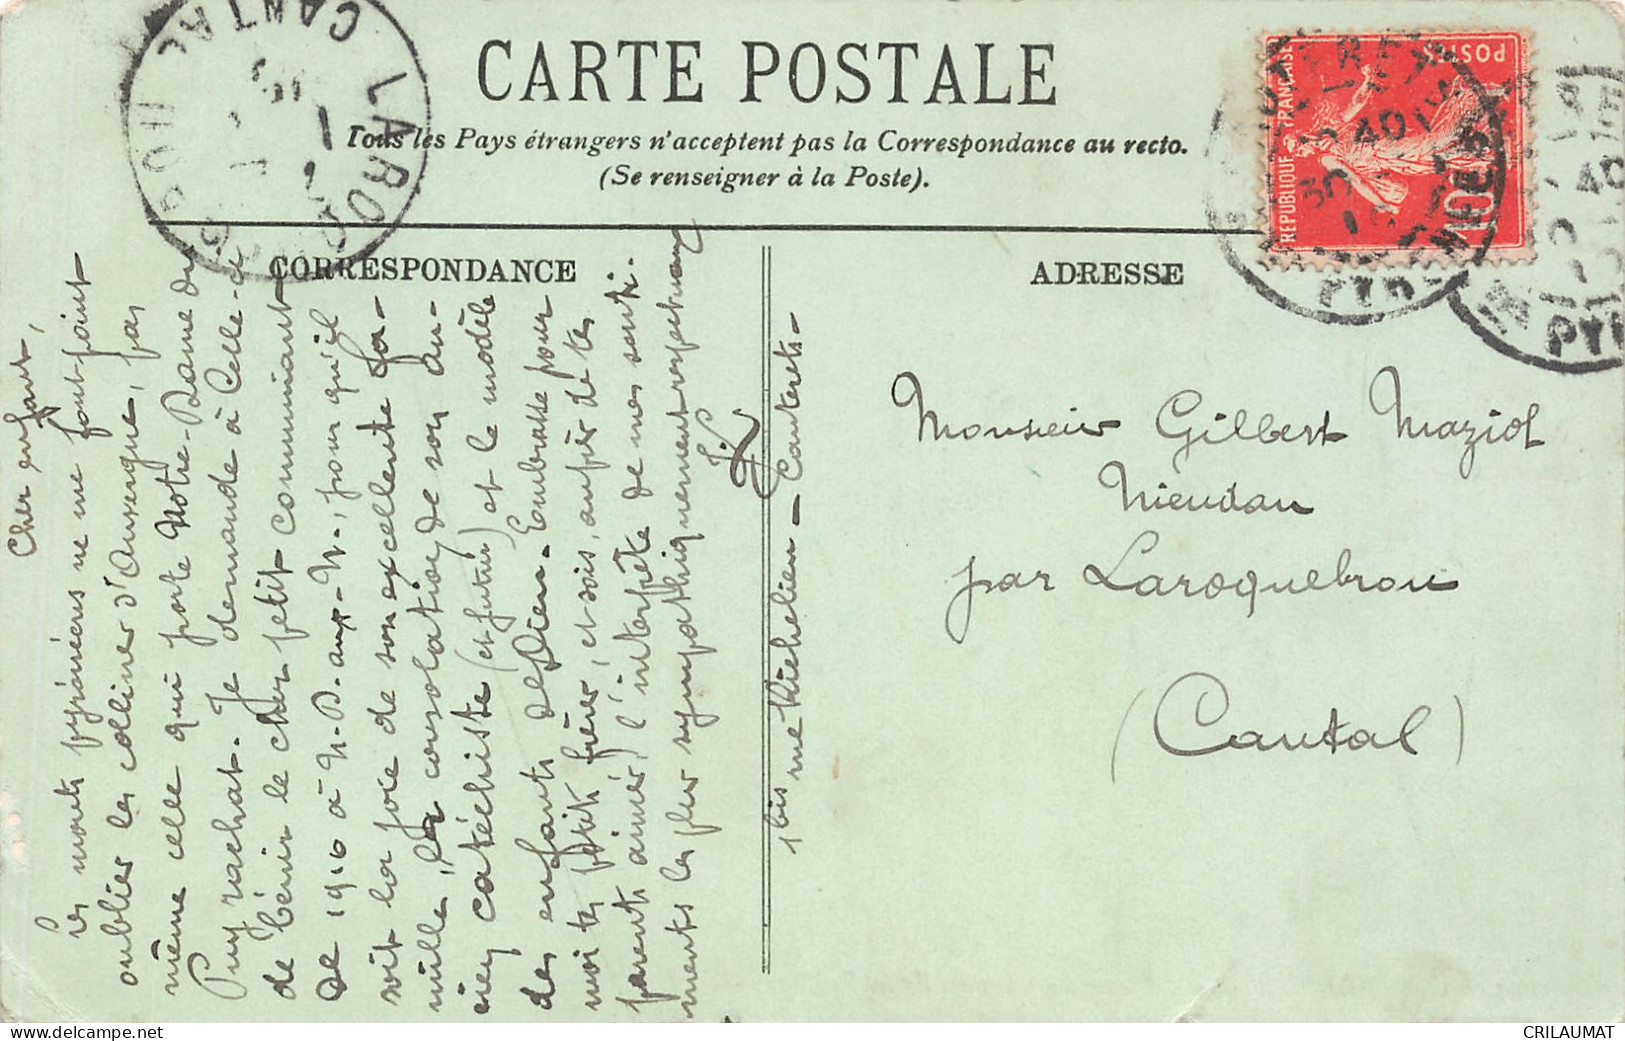 CARTE POSTALE
Tous les Pays étrangers n'acceptent pas la Correspondance au recto.
(Se renseigner à la Poste).
CORRESPONDANCE
ADRESSE
Cher enfant,
Les monts pyrénéens ne me font point
oublier les collines d'Auvergne, pas
même celle qui porte Notre-Dame du
Puy rachat. Je demande à Celle-ci
de bénir le cher petit communiant
de 1910 à N.D. aux-N., pour qu'il
soit la joie de son excellente fa-
mille, la consolation de son an-
cien catéchiste (et futur) et le modèle
des enfants de Dieu. Embrasse pour
moi tes petits frères, et sois, auprès de tes
parents aimés, l'interprète de mes senti-
ments les plus sympathiquement respectueux
1bis rue Richelieu - Cauterets -
Monsieur Gilbert Maziol
Nieudan
par Laroquebrou
(Cantal)
REPUBLIQUE FRANÇAISE
POSTES
10c
CANTAL
LAROQ
PYR
PY
www.delcampe.net
CRILAUMAT